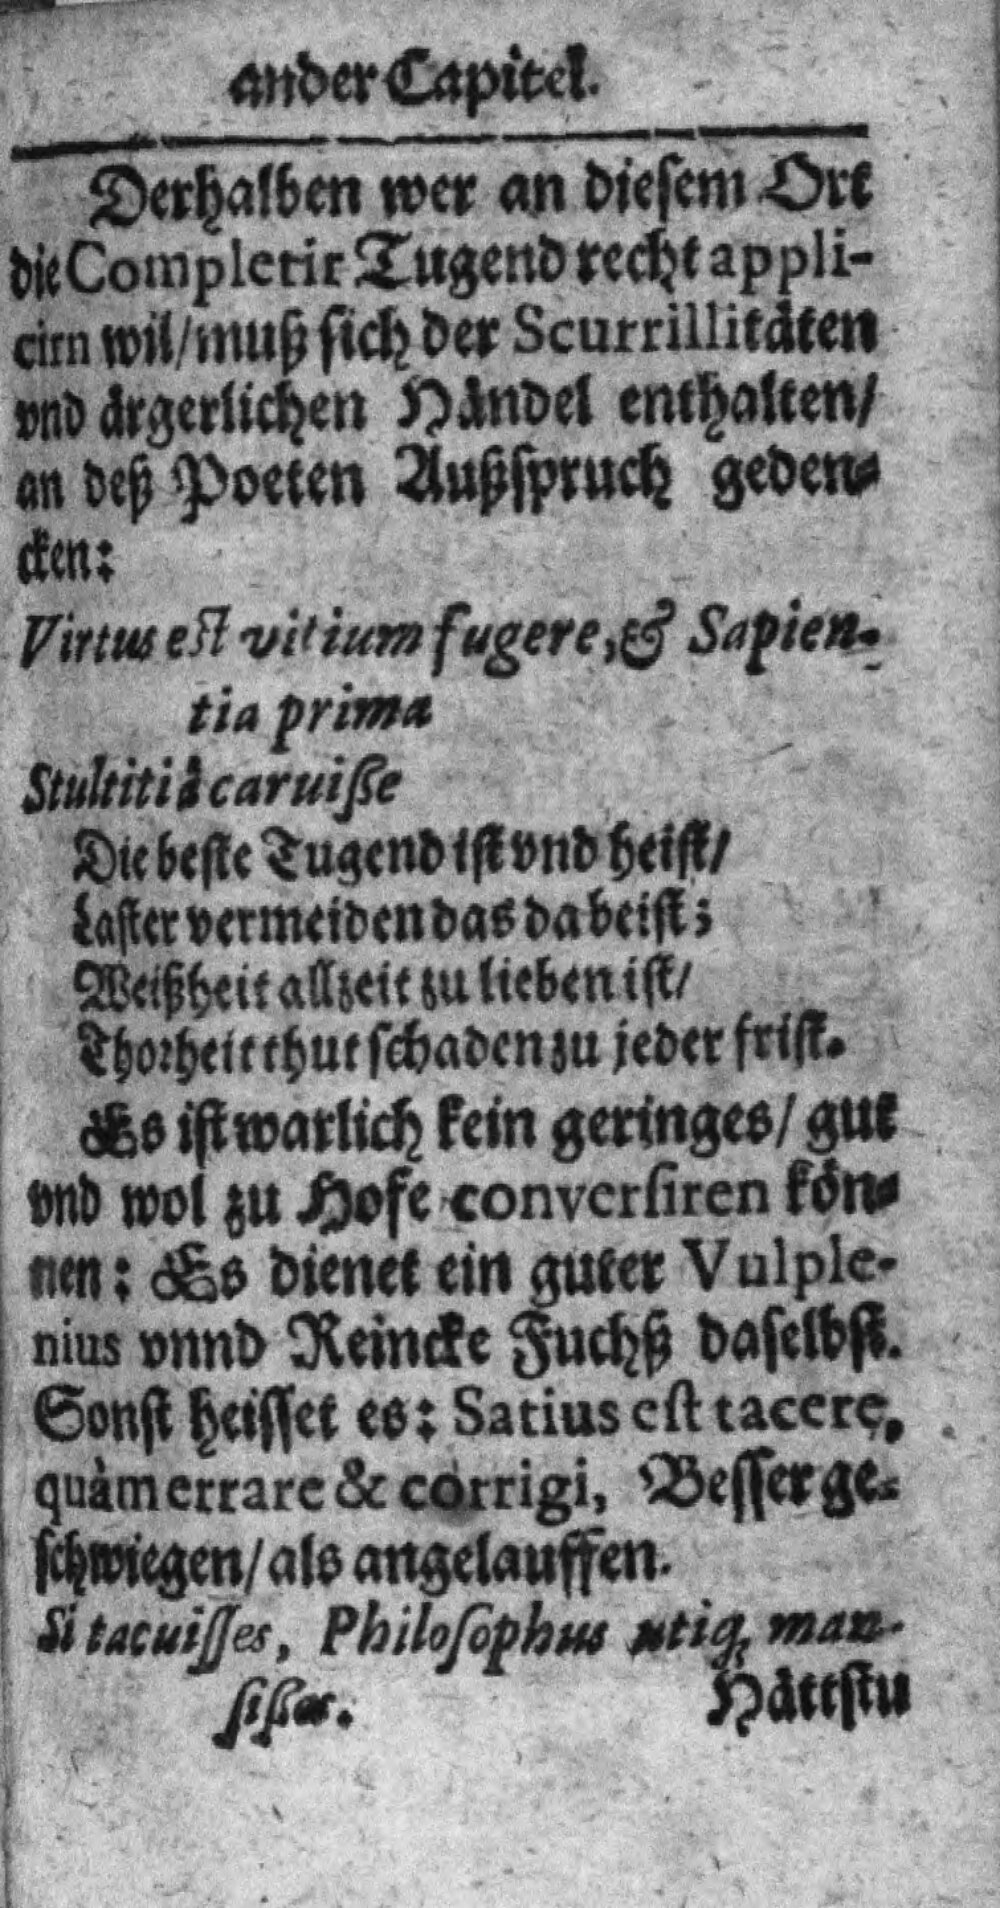 ander Capitel.
Derhalben wer an diesem Ort
die Completir Tugend recht appli-
cirn wil/muß sich der Scurrillitäten
vnd ärgerlichen Händel enthalten/
an deß Poeten Außspruch geden-
cken:
Virtus est vitium fugere, & Sapien-
tia prima
Stultitiâ caruisse
Die beste Tugend ist vnd heist/
Laster vermeiden das da beist;
Weißheit allzeit zu lieben ist/
Thorheit thut schaden zu jeder frist.
Es ist warlich kein geringes/ gut
vnd wol zu Hofe conversiren kön-
nen: Es dienet ein guter Vulple-
nius vnnd Reincke Fuchß daselbst.
Sonst heisset es: Satius est tacere,
quàm errare & corrigi, Besser ge-
schwiegen/als angelauffen.
Si tacuisses, Philosophus utiq; man-
sisses.
Hättstu